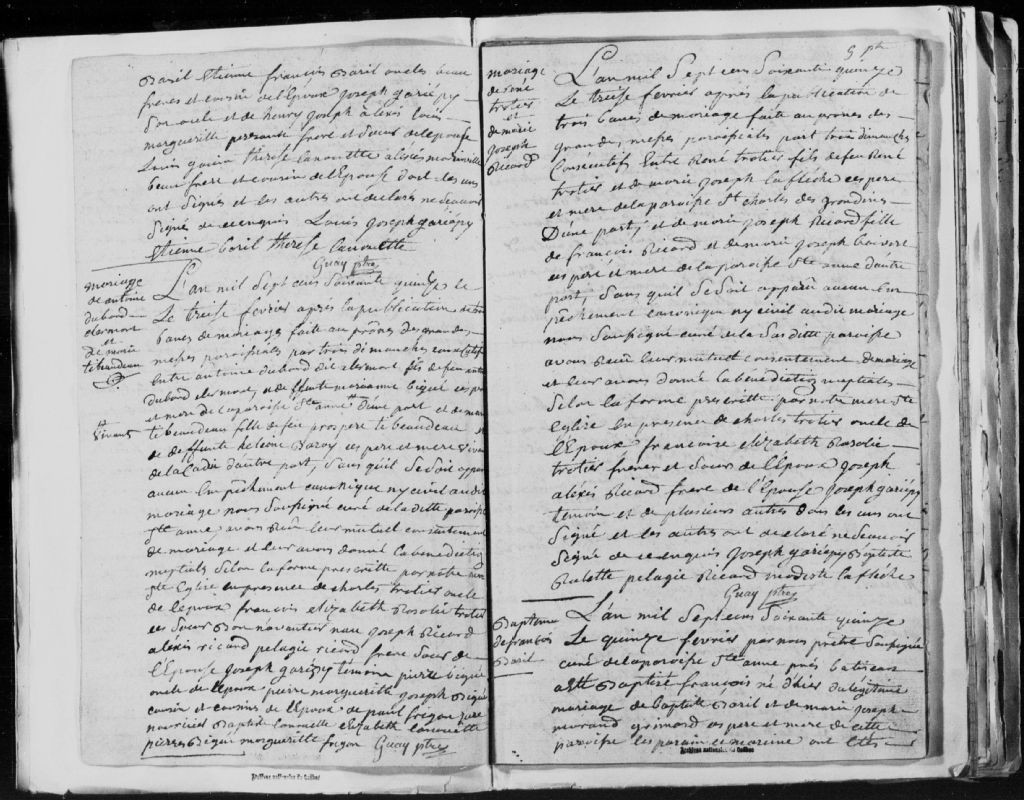 Baril Etienne françois Baril oncles beau
freres et cousin de l'Epoux joseph gariépy
son oncle et de henry joseph aléxis Louis
marguerille frere et soeurs de lepouse
Louis therese Lanouette aléxis
beau frere et cousin de l'Epouse dont les uns
ont signés et les autres ont declarés ne scavoir
signé de ce enquis Louis joseph gariépy
Etienne baril therese lanouette
Guay ptre
mariage
de antoine
dubord
clermont
et
de marie
tibaudeau
L'an mil sept cens soixante quinze le
Le treise fevrier après la publication de trois
bancs de mariage faite au prônes des grandes
messes paroissiales par trois dimanches consecutifs
Entre antoine dubord dit clermont fils de feu antoine
dubord clermont, et de deffunte marianne bigué ces pere
et mere de la paroisse Ste anne d'une part et de marie
tibeaudeau fille de feu prospere tibeaudeau et
de deffunte helenne ces pere et mere vivans
vivans
de la Cadie d'autre part, sans qu'il se soit apparu
aucun Empêchement canonique ny civil audit
mariage nous soussigné curé de la ditte paroisse
Ste anne, avons Recûe leur mutuel consentement
de mariage et leur avons donné la bénédiction
nuptiale selon la forme prescritte par nôtre mere
Ste Eglise en presence de charles trotier oncle
de l'epoux françois elizabeth Rosalie trotier
ces soeurs Bonnaventure joseph Ricard
aléxis ricard pelagie ricard frere soeur de
l'Epouse joseph gariépy témoins pierre bigué
oncle de l'epoux pierre marguerille joseph Bigué
cousin et cousines de l'Epoux de paul frigon pere
nourricier Baptiste lanouette elizabeth lanouette
pierre Bigué marguerille frigon Guay ptre
Archives nationales du Québec
5 
mariage
de René
trotier
et
de marie
joseph
Ricard
L'an mil sept cens soixante quinze
Le treise fevrier après la publication de
trois bancs de mariage faite au prônes des
grandes messes paroissiales part trois dimanches
Consecutifs Entre René trotier fils de feu René
trotier et de marie joseph la flèche ces pere
et mere de la paroisse St charles des grondines
D'une part, et de marie joseph Ricard fille
de françois Ricard et de marie joseph boisvert
ces pere et mere de la paroisse Ste anne d'autre
part, sans qu'il se soit apparu aucun Em
pêchement canonique ny civil audit mariage
nous soussigné curé de la susditte paroisse
avons Recûe leur mutuel consentement de mariage
et leur avons donné la bénédiction nuptiale
selon la forme prescritte par notre mere Ste
Eglise En presence de charles trotier oncle de
l'Epoux françoise elizabeth Rosalie
trotier freres et soeurs de l'Epoux joseph
aléxis Ricard frere de l'Epouse joseph gariépy
temoin et de plusieurs autres dons les uns ont
signé et les autres ont declaré ne scavoir
signé de ce enquis joseph gariepy Baptiste
Rulotte pelagie Ricard modeste la flèche
Guay ptre
Baptême
de françois
Baril
L'an mil sept cens soixante quinze
Le quinze fevrier par nous prêtre soussigné
curé de la paroisse Ste anne près batiscan
a été Baptisé françois né d'hier du légitime
mariage de baptiste Baril et de marie joseph
morand grimard ces pere et mere de cette
paroisse les parain et maraine ont étés
Archives nationales du Québec